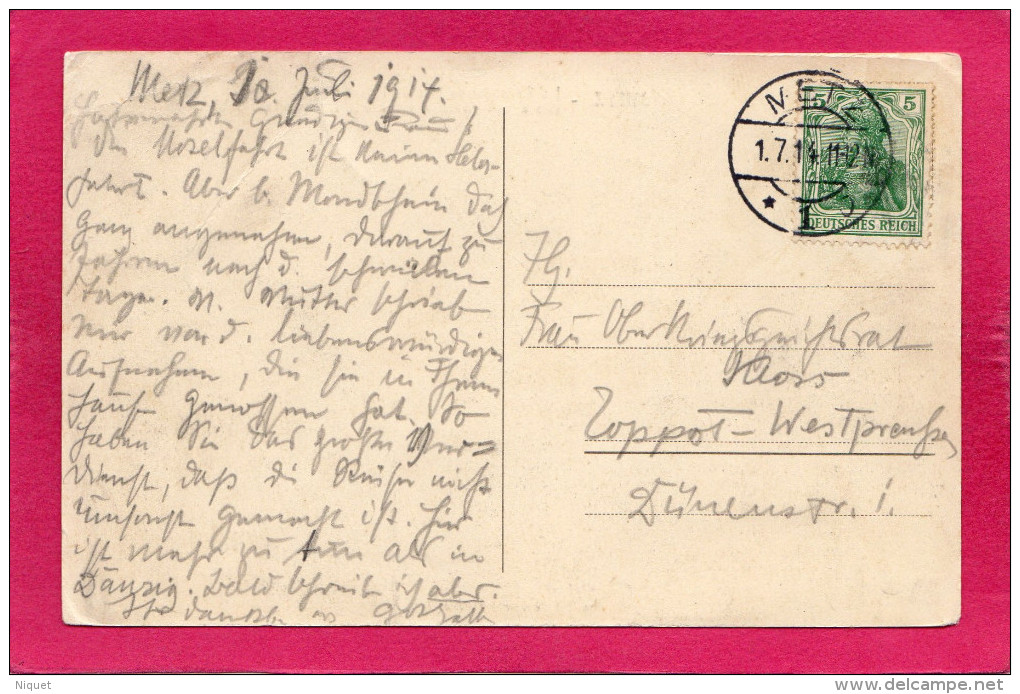 Metz, 10. Juli 1914.
Gnädige Frau!
Die Moselfahrt ist keine
fahrt. Aber b. Mondschein doch
ganz angenehm, darauf zu
fahren nach d. schwülen
Tage. M. Mutter schrieb
mir von d. liebenswürdigen
Aufnahme, die sie in Ihrem
Hause genossen hat. So
haben Sie das große Ver=
dienst, daß die Reise nicht
umsonst gemacht ist. Hier
ist mehr zu tun als in
Danzig. Bald schreibe ich aber.
Ihr dankb.
METZ
1.7.14.11-12N
* 1
5 5
DEUTSCHES REICH
Frau Oberkriegsgerichtsrat
Kloss
Zoppot-Westpreußen
Dünenstr. 1.
Niquet
delcampe.net